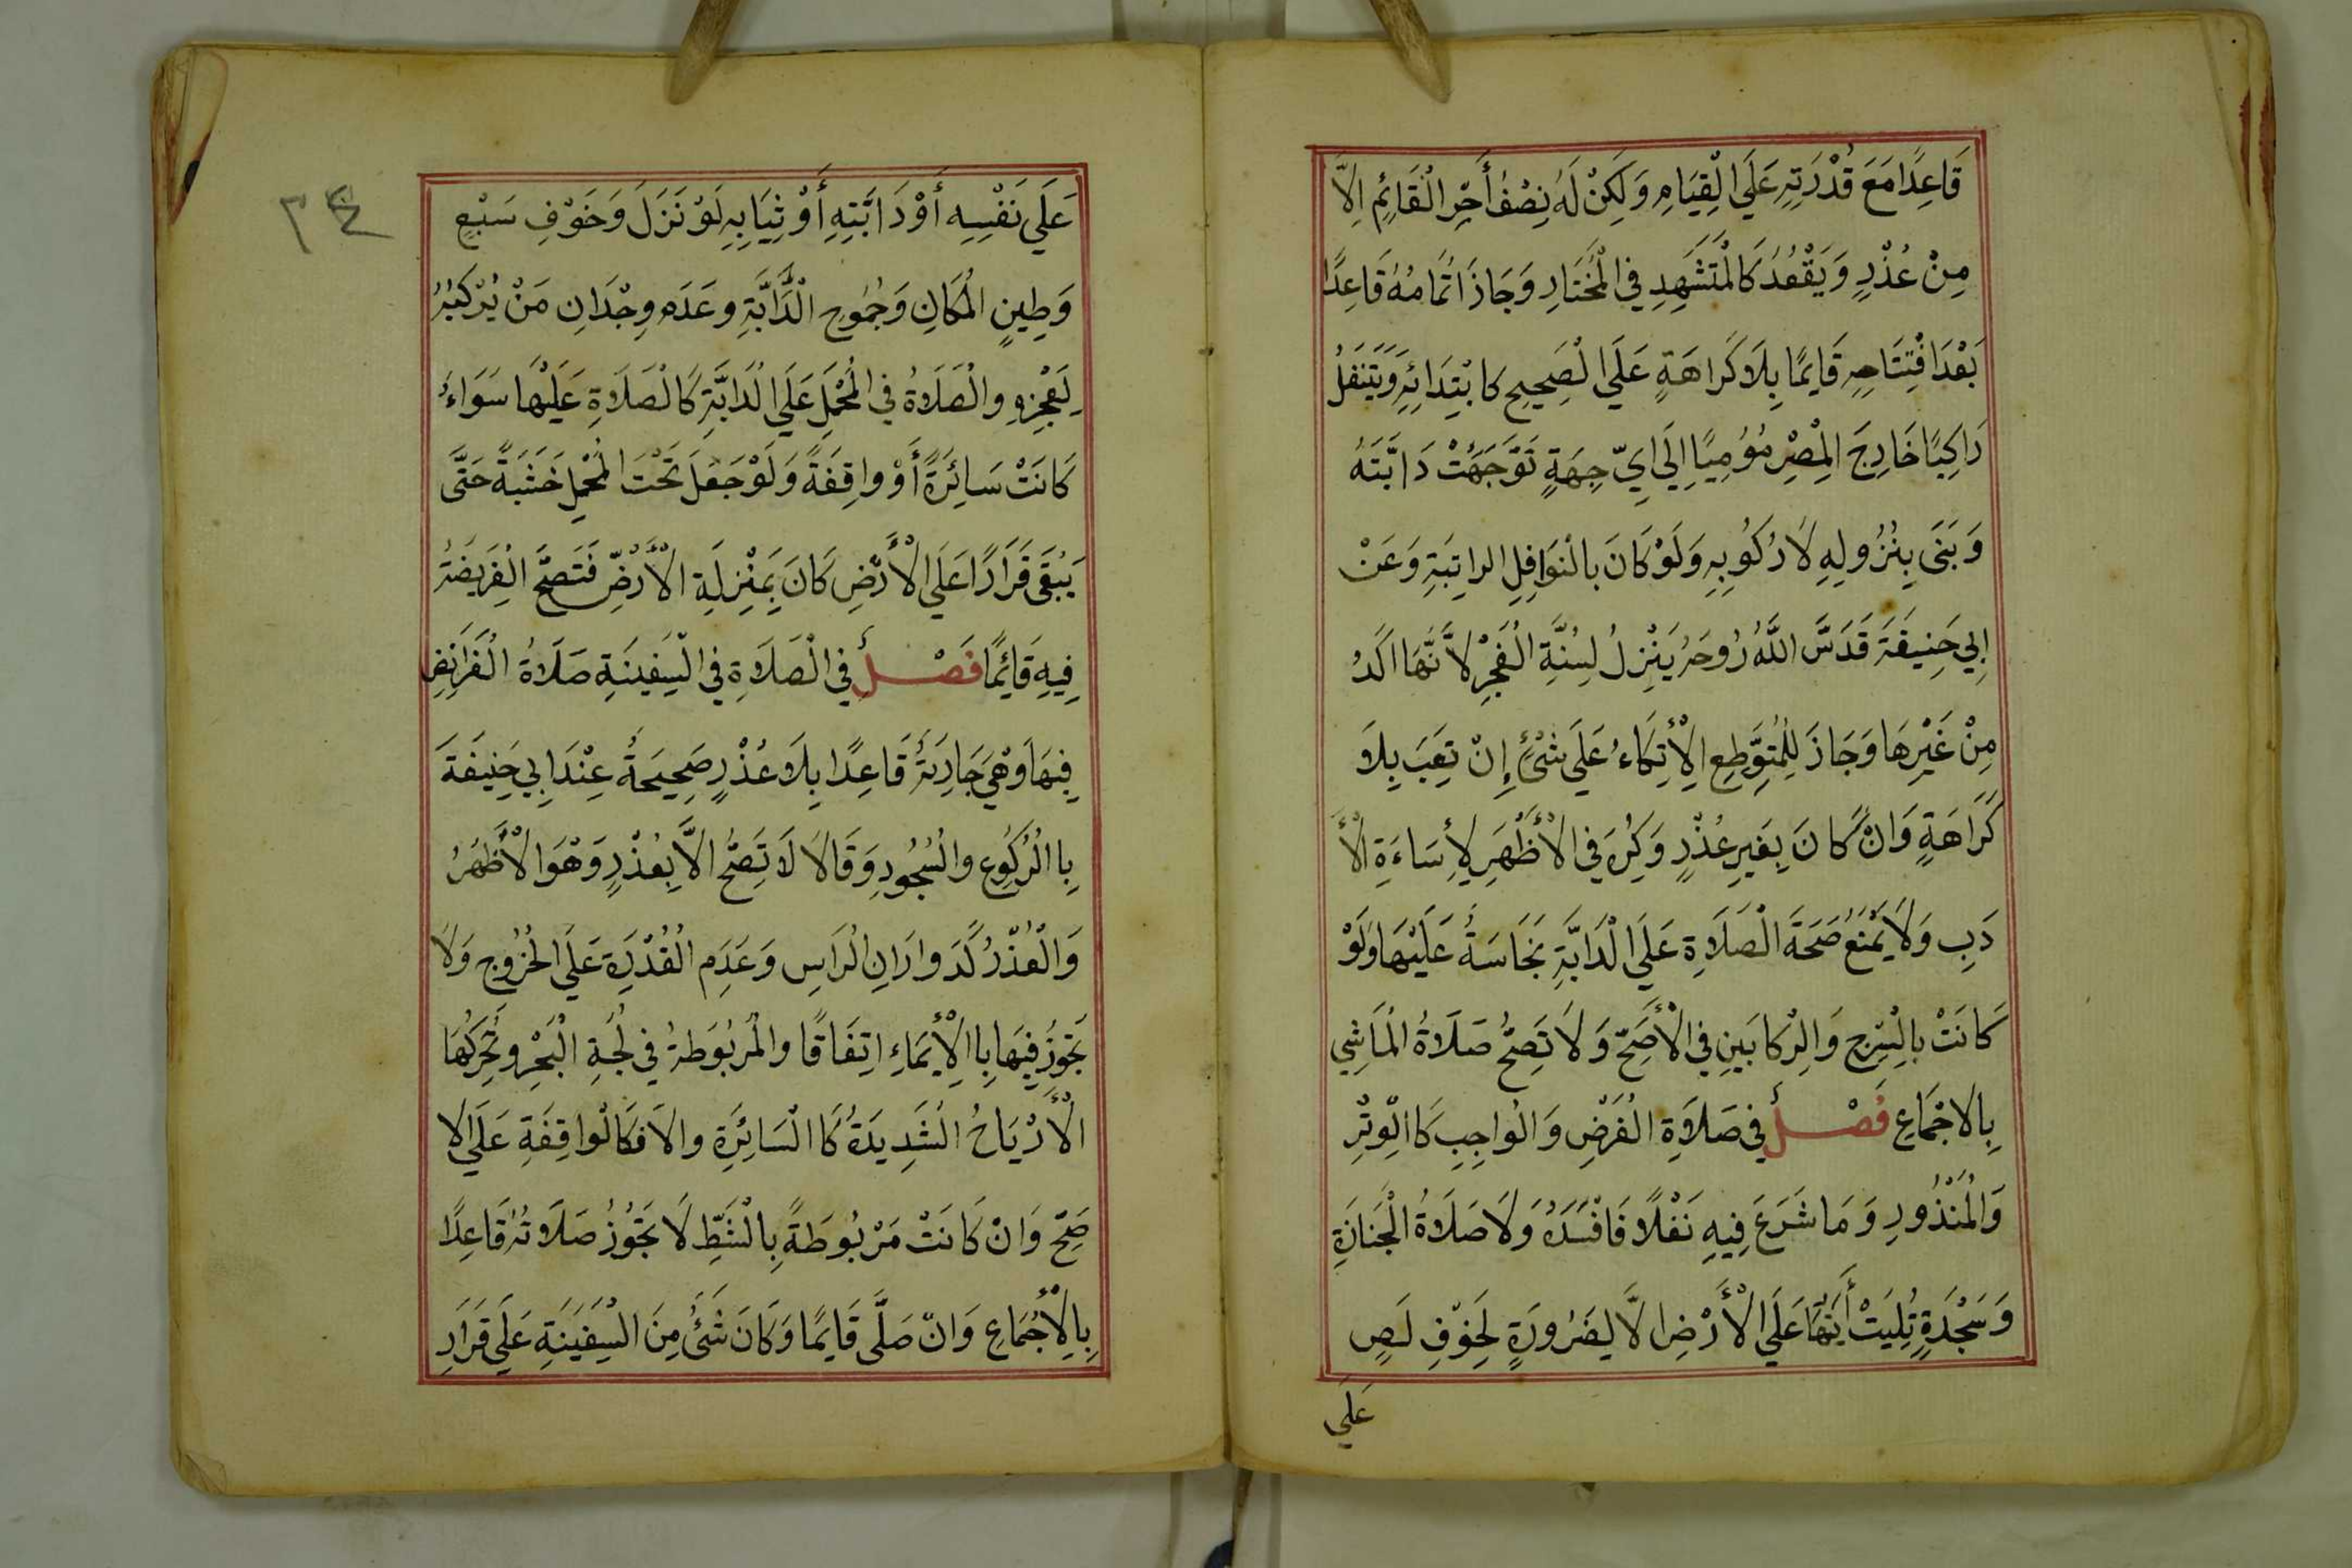 قَاعِدًا مَعَ قُدْرَتِهِ عَلَي الْقِيَامِ وَلَكِنْ لَهُ نِصْفُ أَجْرِ الْقَائِمِ اِلاَّ
مِنْ عُذْرٍ وَيَقْعُدُ كَالْمُتَشَهِدِ فِي الْمُخْتَارِ وَجَازَ اتْمَامُهُ قَاعِدًا
بَعْدَ افْتِتَاحِهِ قَايِمًا بِلَا كَرَاهَةٍ عَلَي الْصَحِيحِ كابْتِدَائِهِ وَيَتَنَفَلُ
رَاكِبًا خَارِجَ الْمِصْرِ مُؤْمِيًا اِلَي ايِّ جِهَةٍ تَوَجَهَتْ دَابَّتَهُ
وَبَنَى بِنُزُولِهِ لَا رُكُوبِهِ وَلَوْ كَانَ بالْنَوَافِلِ الراتِبَةِ وَعَنْ
ابِي حَنِيفَةَ قَدَسَّ اللَّهُ رُوحَهُ يَنْزِلُ لِسُنَّةِ الْفَجْرِ لاَنَّهَا اَكَدُ
مِنْ غَيْرِهَا وَجَازَ لِلْمُتَوِّطِعِ الِاْتِكَاءُ عَلَي شْئٍ إِنْ تَعِبَ بِلَا
كَرَاهَةٍ وَانْ كَانَ بِغَيرِ عُذْرٍ وَكُرِهَ فِي الْأَظْهَرِ لِأِسَاءَةِ الْأَ
دَبِ وَلَا يَمْنَعُ صَحَةَ الْصَلَاةِ عَلَي الْدَابَّةِ نَجَاسَةُ عَلَيْهَا وَلَوْ
كَانَتْ بالْسَرْجِ وَالْرِكابَينِ فِي الْأَصَحِّ وَلَا تَصِحُّ صَلَاةُ الْمَاشِي
بِالاجْمَاعِ فَصْـــلُ فِي صَلَاةِ الْفَرْضِ وَالْواجِبِ كَاالْوِتْرِ
وَالْمُنْذُورِ وَمَا شَرَعَ فِيهِ نَفْلًا فَافْسَدَهُ وَلَا صَلَاةُ الْجَنَازَةِ
وَسَجْدَةٍ تُلِيَتْ أَيَتُهَا عَلَي الْأَرْضِ الَّا لِضَرُورَةٍ لِخَوْفِ لَصٍ
عَلَي
عَلَي نَفْسِهِ أَوْ دَابَّتِهِ أَوْ ثِيَابِهِ لَوْ نَزَلَ وَخَوْفِ سَبْعٍ
وَطِينِ الْمَكَانِ وَجُمُوحِ الْدَّابَّةِ وعَدَمِ وِجْدَانِ مَنْ يُرْكِبُهُ
لِعَجْزِهِ والْصَلَاةُ فِي الْمُحْمَلِ عَلَي الْدَابَّةِ كَالْصَلَاةِ عَلَيْهَا سَوَاءُ
كَانَتْ سَائِرَةً أَوْ واقِفَةً وَلَوْ جَعَلَ تَحْتَ الْمُحْمِلِ خَشَبَةً حَتَّى
يَبْقَى قَرَارًا عَلَي الْأَرْضِ كَانَ بِمَنْزِلَةِ الْأَرْضِ فَتَصَحُّ الْفَرِيضَةُ
فِيهِ قَائِمًا فَصْـــلُ فِي الْصَلَاةِ فِي الْسَفِينَةِ صَلَاةُ الْفَرَائِضِ
فِيهَا وَهْيَ جَارِيَةُ قَاعِدًا بِلَا عُذْرٍ صَحِيحَةُ عِنْدَ ابِي حَنِيفَةَ
بِاالْرُكُوعِ والْسُجُودِ وَقَالَا لَا تَصِحُّ الاَّ بِعُذْرٍ وَهْوَ الْأَظْهَرُ
وَالْعُذْرُ كَدَوارَانِ الْرَاسِ وَعَدَمِ الْقُدْرَةِ عَلَي الْخُرُوجِ وَلَا
تَجَوُزُ فِيهَا بِاالْأِيْمَاءِ اتِفَاقًا والْمَرْبُوَطةُ فِي لُجَةِ الْبَحْرِ وتُحَرِكُهَا
الْأَرْيَاحُ الْشَدِيدَةُ كَاالْسَائِرَةِ والاَ فكَالْواقِفَةِ عَلَي الا
صَحِّ وَانْ كَانَتْ مَرْبُوطَةً بِالْشَطِّ لَا تَجَوُزُ صَلَاتُهُ قَاعِدًا
بِالِأْجْمَاعِ وَانْ صَلَّى قَايِمًا وَكَانَ شَئُ مِنَ الْسَفِينَةِ عَلَي قَرَارِ